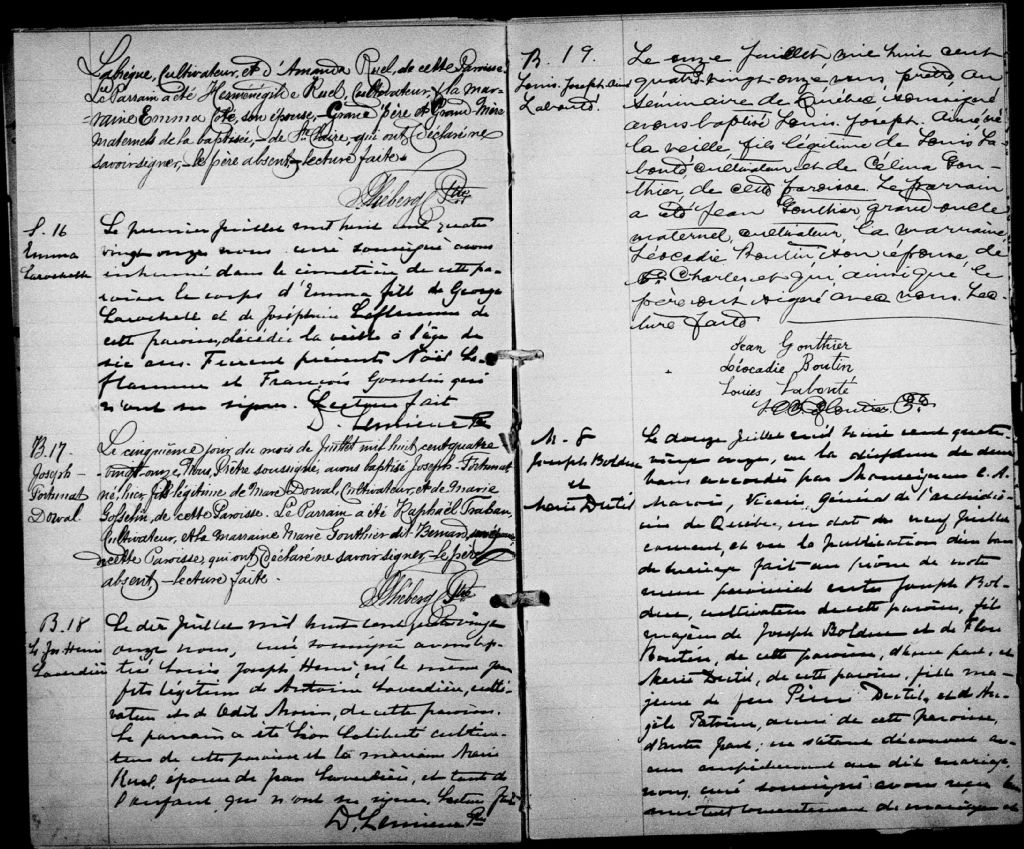 Labéque, Cultivateur, et d'Amanda Ruel, de cette Paroisse.
Le Parrain a été Herménégilde Ruel, Cultivateur, & la mar-
raine Emma Coté, son épouse, Grand Père et Grand Mère
Maternels de la baptisée, - de St. Claire, qui ont déclaré ne
savoir signer, - le père absent - lecture faite.
Ptre
S. 16
Emma
Larochelle
Le premier Juillet mil huit cent quatre
vingt onze nous curé soussigné avons
inhumé dans le cimetière de cette pa-
roisse le corps d'Emma fille de George
Larochelle et de Joséphine Laflamme de
cette paroisse, décédée la veille à l'âge de
six ans. Furent présents Noël La-
flamme et François Gosselin qui
n'ont su signer. Lecture faite
D. Lemieux Ptre
B. 17
Joseph-
Fortunat
Dorval
Le cinquième jour du mois de Juillet mil huit cent quatre
vingt-onze, Nous, Prêtre soussigné, avons baptisé Joseph-Fortunat
né hier, fils légitime de Marc Dorval, Cultivateur, et de Marie
Gosselin, de cette Paroisse. Le Parrain a été Raphaël Trahan,
Cultivateur, et la Marraine Marie Gonthier dit Bernard, son épouse
de cette Paroisse, qui ont déclaré ne savoir signer, - le père
absent, - lecture faite.
Ptre
B. 18
Ls Jos Henri
Laverdière
Le dix Juillet mil huit cent quatrevingt
onze nous, curé soussigné avons bap-
tisé Louis Joseph Henri, né le même jour
fils légitime de Antoine Laverdière, culti-
vateur et de Odil Morin, de cette paroisse.
Le parrain a été Léon Laliberté cultiva-
teur de cette paroisse et la marraine Marie
Ruel, épouse de Jean Laverdière, et tante de
l'enfant qui n'ont su signer. Lecture faite
D. Lemieux Ptre
B. 19.
Louis. Joseph
Labonté.
Le onze Juillet, mil huit cent
quatre vingt-onze nous prêtre au
séminaire de Québec, soussigné
avons baptisé Louis. Joseph. né
la veille fils légitime de Louis La-
bonté cultivateur et de Célina Gon-
thier, de cette paroisse. Le parrain
a été Jean Gonthier grand oncle
maternel, cultivateur, la marraine
Léocadie Boutin son épouse, de
St. Charles et qui, ainsi que le
père ont signé avec nous. Lec-
ture faite
Jean Gonthier
Léocadie Boutin
Louis Labonté
M. 8
Joseph Bolduc
et
Marie Dutil
Le douze Juillet mil huit cent quatre-
vingt onze, vu la dispense de deux
bans accordée par Monseigneur C. A.
Marois, Vicaire Général de l'archidio-
cèse de Québec, en date du neuf Juillet
courant, et vu la publication d'un ban
de mariage fait au prône de notre
messe paroissiale entre Joseph Bol-
duc, cultivateur de cette paroisse, fils
majeur de Joseph Bolduc et de Flore
Boutin, de cette paroisse, d'une part, et
Marie Dutil, de cette paroisse, fille ma-
jeure de feu Pierre Dutil, et d'An-
gèle Patoine, aussi de cette paroisse,
d'autre part; ne s'étant découvert au-
cun empêchement au dit mariage,
nous, curé soussigné avons reçu leur
mutuel consentement de mariage et